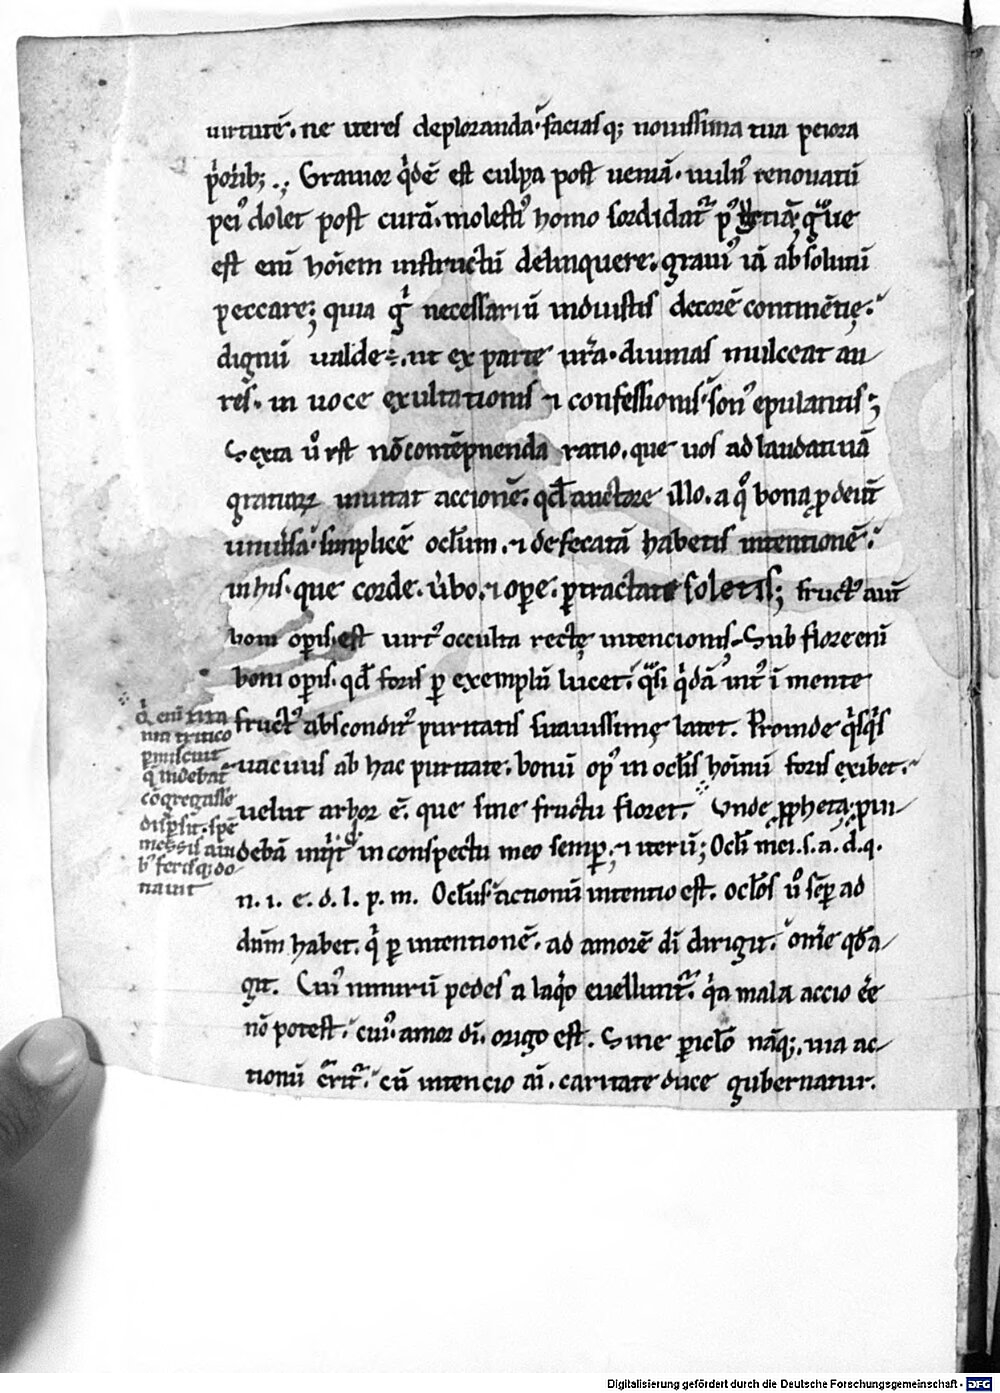 uirtutē. ne iteres deploranda. faciasq; nouissima tua peiora
p̓orib;. Grauior q̓dē est culpa post ueniā. uuln᾽ renouatū
pei᾽ dolet post curā. molesti᾽ homo sordidat᷑ p᾽
est eni hoīem instructū delinquere. graui᾽ iā absolutū
peccare; quia necessariū induistis decorē continētie.
dignū ualde ÷. ut ex parte ur̄a. diuinas mulceat au
res. in uoce exultationis ⁊ confessionis. son᾽ epulantis;
Sexta ů est nō contēpnenda ratio. que uos ad laudatiuā
gratiaꝝ inuitat accionē. qđ auctore illo. a q̊ bona ꝓdeūt
uniūsa. simplicē oc̄lum. ⁊ defecatā habetis intentionē.
in his. que corde. ůbo. ⁊ oꝑe. ꝑtractare soletis; fruct᾽ aūt
boni oꝑis. est uirt᾽ occulta recte intencionis. Sub flore eni
boni oꝑis. qđ foris ꝑ exemplū lucet. q̃si q̓dā int᾽ ī mente
fruct᾽ abscondit᾽ puritatis suauissimę latet. Proinde q̓sq̓s
uacuus ab hac puritate. bonū op᾽ in oc̄lis hoīnū foris exibet.
uelut arbor ē. que sine fructu floret. Vnde ꝓpheta; ꝓui
debā inq̓t in conspectu meo semꝑ; ⁊ iterū; Oc̄li mei. s. a. d. q.
n. i. e. d. l. p. m. Oc̄lus actionū intentio est. oc̄los ů sēꝑ ad
dn̄m habet. q̓ ꝑ intentionē. ad amorē dī dirigit. om̄e qđ a
git. Cui᾽ nimirū pedes a laq̊o euellunt᷑. q̓a mala accio ēē
nō potest. cui᾽ amor dī. origo est. Sine ꝑic̄lo nāq;. uia ac
tionū t̄erit᷑. cū intencio aī. caritate duce gubernatur.
q̓ eni
nia tritico
ꝑmiscuit
q̓ inuidebat
cōgregasse
disꝑsit. spē
messis aut
b᾽ ferisq; do
nauit
Digitalisierung gefördert durch die Deutsche Forschungsgemeinschaft - DFG